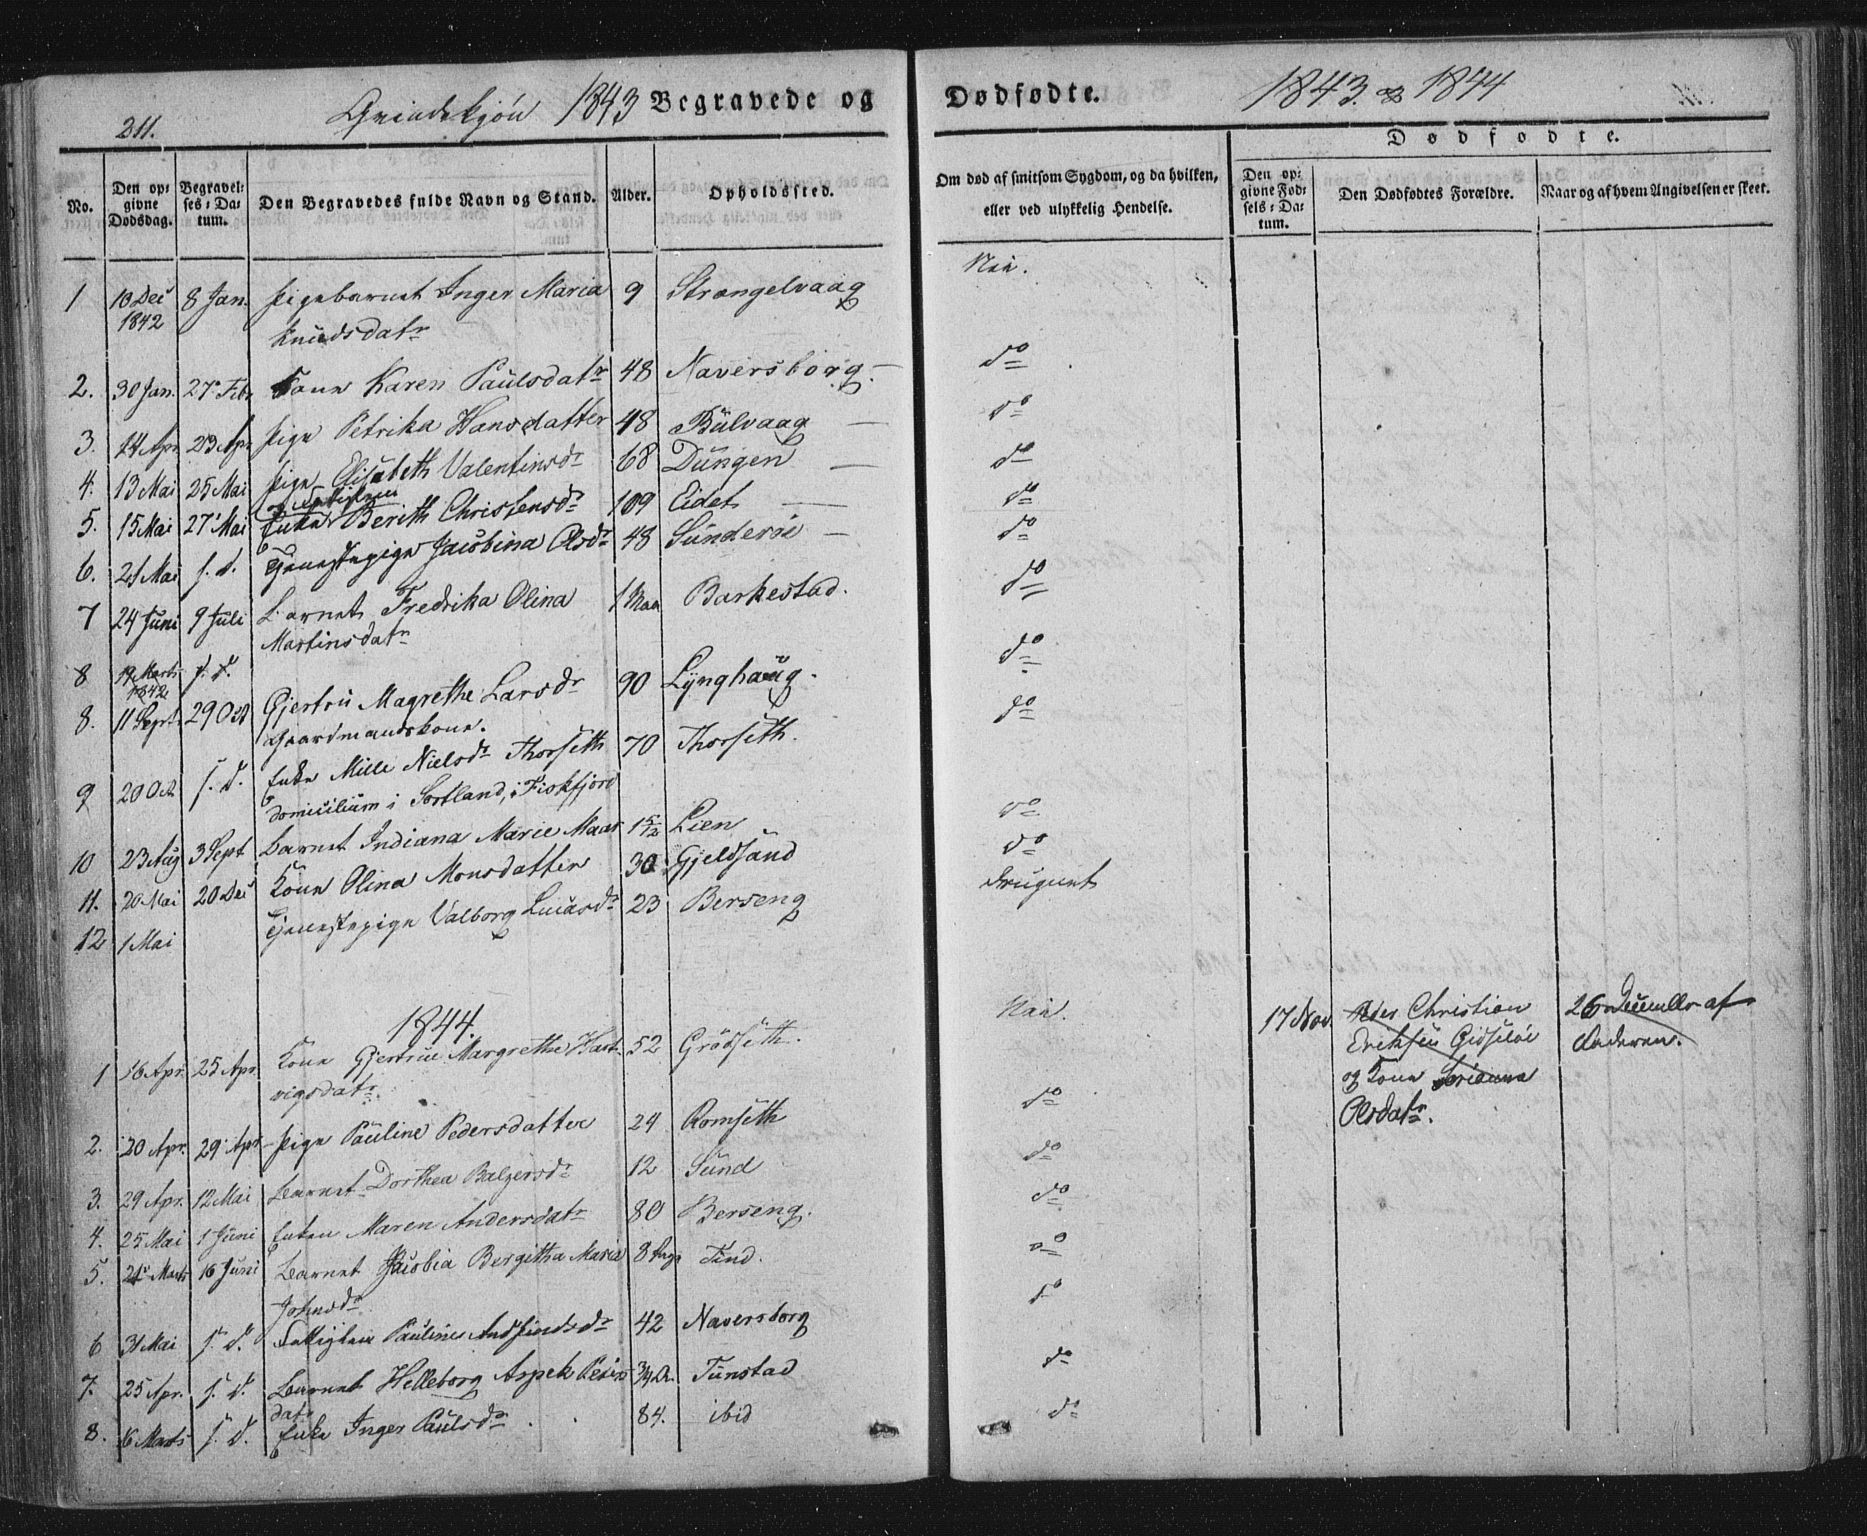 211.
Qvindekjön 1843 Begravede og
Dødfødte. 1843 & 1844
Dødfødte.
No.
Den op-
givne
Dødsdag.
Begravel-
ses-Da-
tum.
Den Begravedes fulde Navn og Stand.
Alder.
Opholdssted.
Om død af smitsom Sygdom, og da hvilken,
eller ved ulykkelig Hendelse.
Den op-
givne Fød-
sels-Da-
tum.
Den Dødfødtes Forældre.
Naar og af hvem Angivelsen er skeet.
1 10 Dec 8 Jan. Pigebarnet Inger Maria 9 Strengelvaag Nei.
1842 Knudsdatr
2. 30 Jan. 27 Febr Kone Karen Paulsdatr 48 Naversborg — do
3. 14 Apr 23 Apr Pige Petrika Hansdatter 48 Bülvaag — do
4. 13 Mai 25 Mai Pige Elisabeth Valentinsdr 68 Dungen — do
5. 15 Mai 27 Mai Enke Berith Christensdr 109 Eidet — do
6. 21 Mai s. d. Tjenestepige Jacobina Olsdr 48 Sünderöe — do
7 24 Juni 9 Juli Barnet Fredrika Olina 1 Maa Barkestad. do
Martinsdatr
8 19 Marts s. d.
1842
8. 11 Sept. 29 Oct Gjertru Magrethe Larsdr 90 Lynghaug. do
Gaardmandskone.
9 20 Oct s. d. Enke Mille Nielsdr Thorseth 70 Thorseth. do
domicilium i Sortland, i Fiskfjord
10 23 Aug 3 Sept Barnet Indiana Marie Maas 1 5/12 Lien do
11. 20 Mai 20 Dec Kone Olina Monsdatter 30 Gjeldsand do
12 1 Mai Tjenestepige Valborg Lucasdr 23 Berseng druknet
1844.
1 16 Apr. 25 Apr. Kone Gjertrue Margrethe Hart- 52 Grödseth. Nei.
vigsdatr.
17 Nov. Peder Christian
Eriksen Gidslöe
og Kone Sorianna
Olsdatr.
26 December af
Faderen.
2. 20 Apr. 29 Apr Pige Pauline Pedersdatter 24 Romseth do
3. 29 Apr. 12 Mai Barnet Dorthea Balzersdr 12 Sund do
4. 25 Mai 1 Juni Enken Maren Andersdatr 80 Berseng. do
5. 21 Marts 16 Juni Barnet Jacobia Bergitha Maria 8 Tind. do
Johnsdr
6 31 Mai s. d. Fattiglem Pauline Andfindsdr 42 Naversborg do
7. 25 Apr. s. d. Barnet Helleborg Aspek Peders 3/4 Tunstad do
datr
8. 6 Marts s. d. Enke Inger Paulsdr 84. ibid do